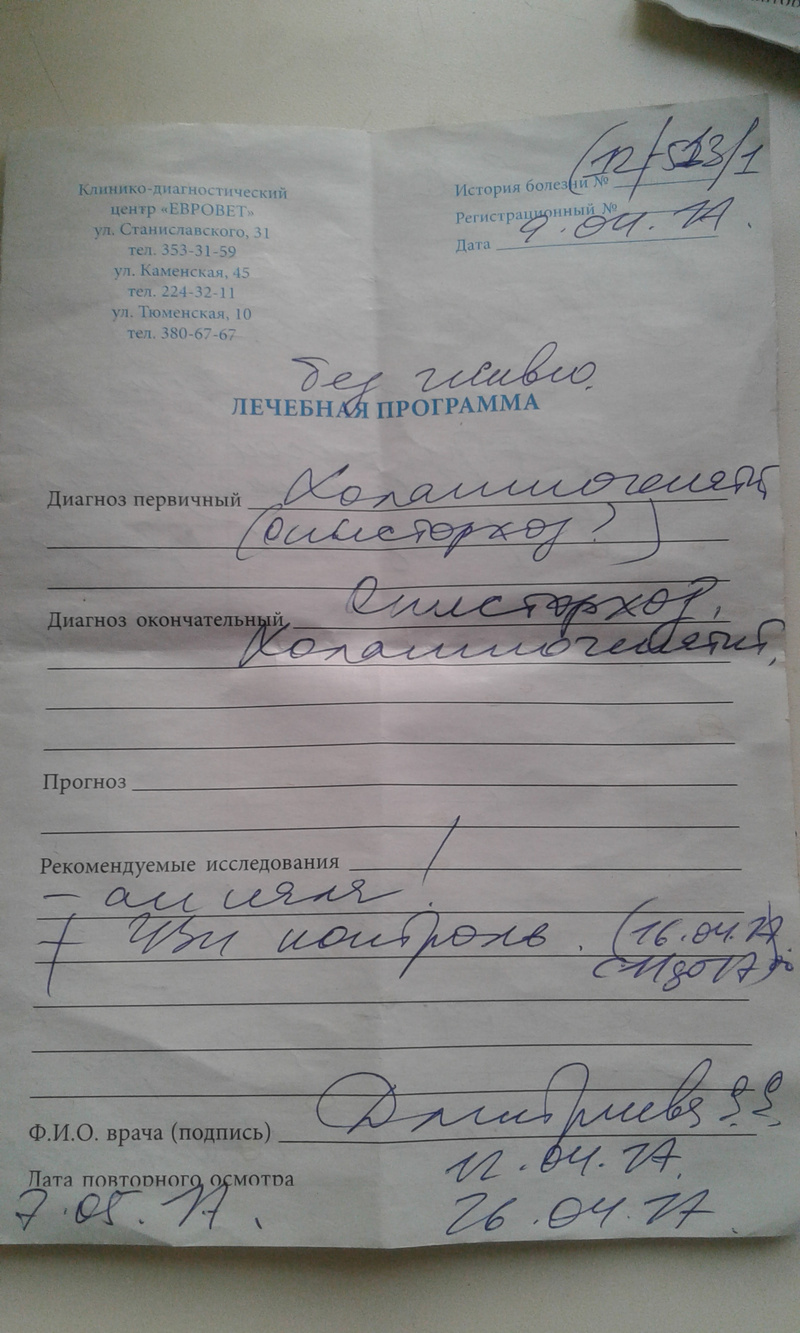 Клинико-диагностический
центр «ЕВРОВЕТ»
ул. Станиславского, 31
тел. 353-31-59
ул. Каменская, 45
тел. 224-32-11
ул. Тюменская, 10
тел. 380-67-67
История болезни № (12/523/1
Регистрационный №
Дата 9.04.17.
без
ЛЕЧЕБНАЯ ПРОГРАММА
Диагноз первичный Холангиогепатит
(Описторхоз?)
Диагноз окончательный Описторхоз,
Холангиогепатит,
Прогноз
Рекомендуемые исследования
- ан кала.
+ УЗИ контроль. (16.04.17.
с 11 до 17)
Ф.И.О. врача (подпись) Дмитриева
Дата повторного осмотра 12.04.17.
7.05.17. 26.04.17.